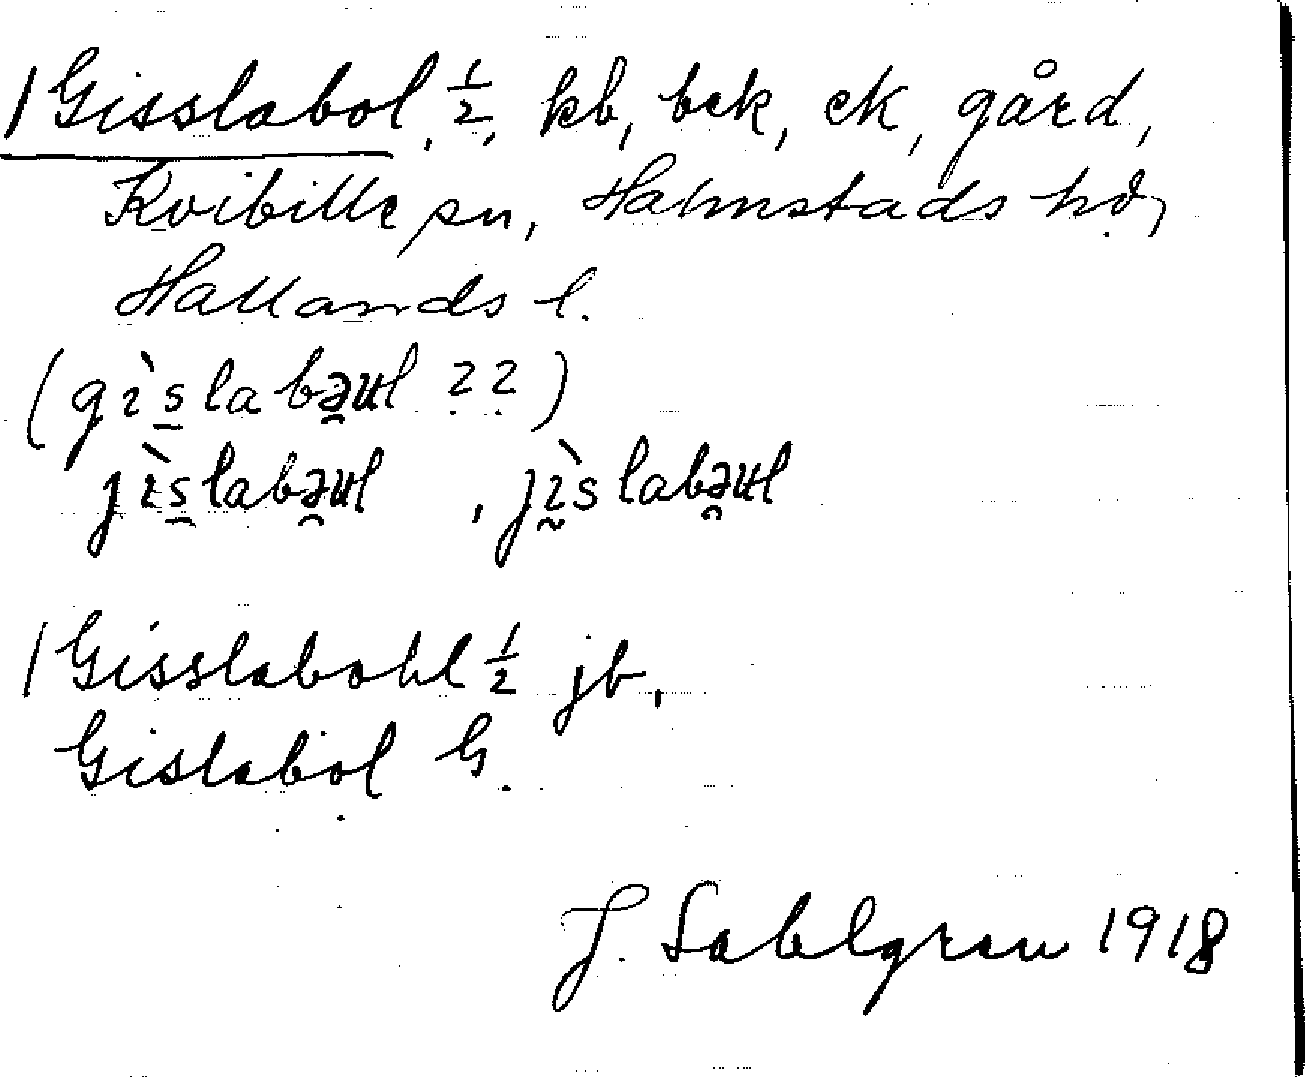 1 Gisslabol, ½, kb, bck, ek, gård,
Kvibille sn, Halmstads hd,
Hallands l.
(gɩ̀s̱labə̯ʉl ??)
jɩ̀s̱labə̯ʉl , jɩ̰̀slabə̯ʉl
1 Gisslabohl ½ jb,
Gislabol G.
J. Sahlgren 1918